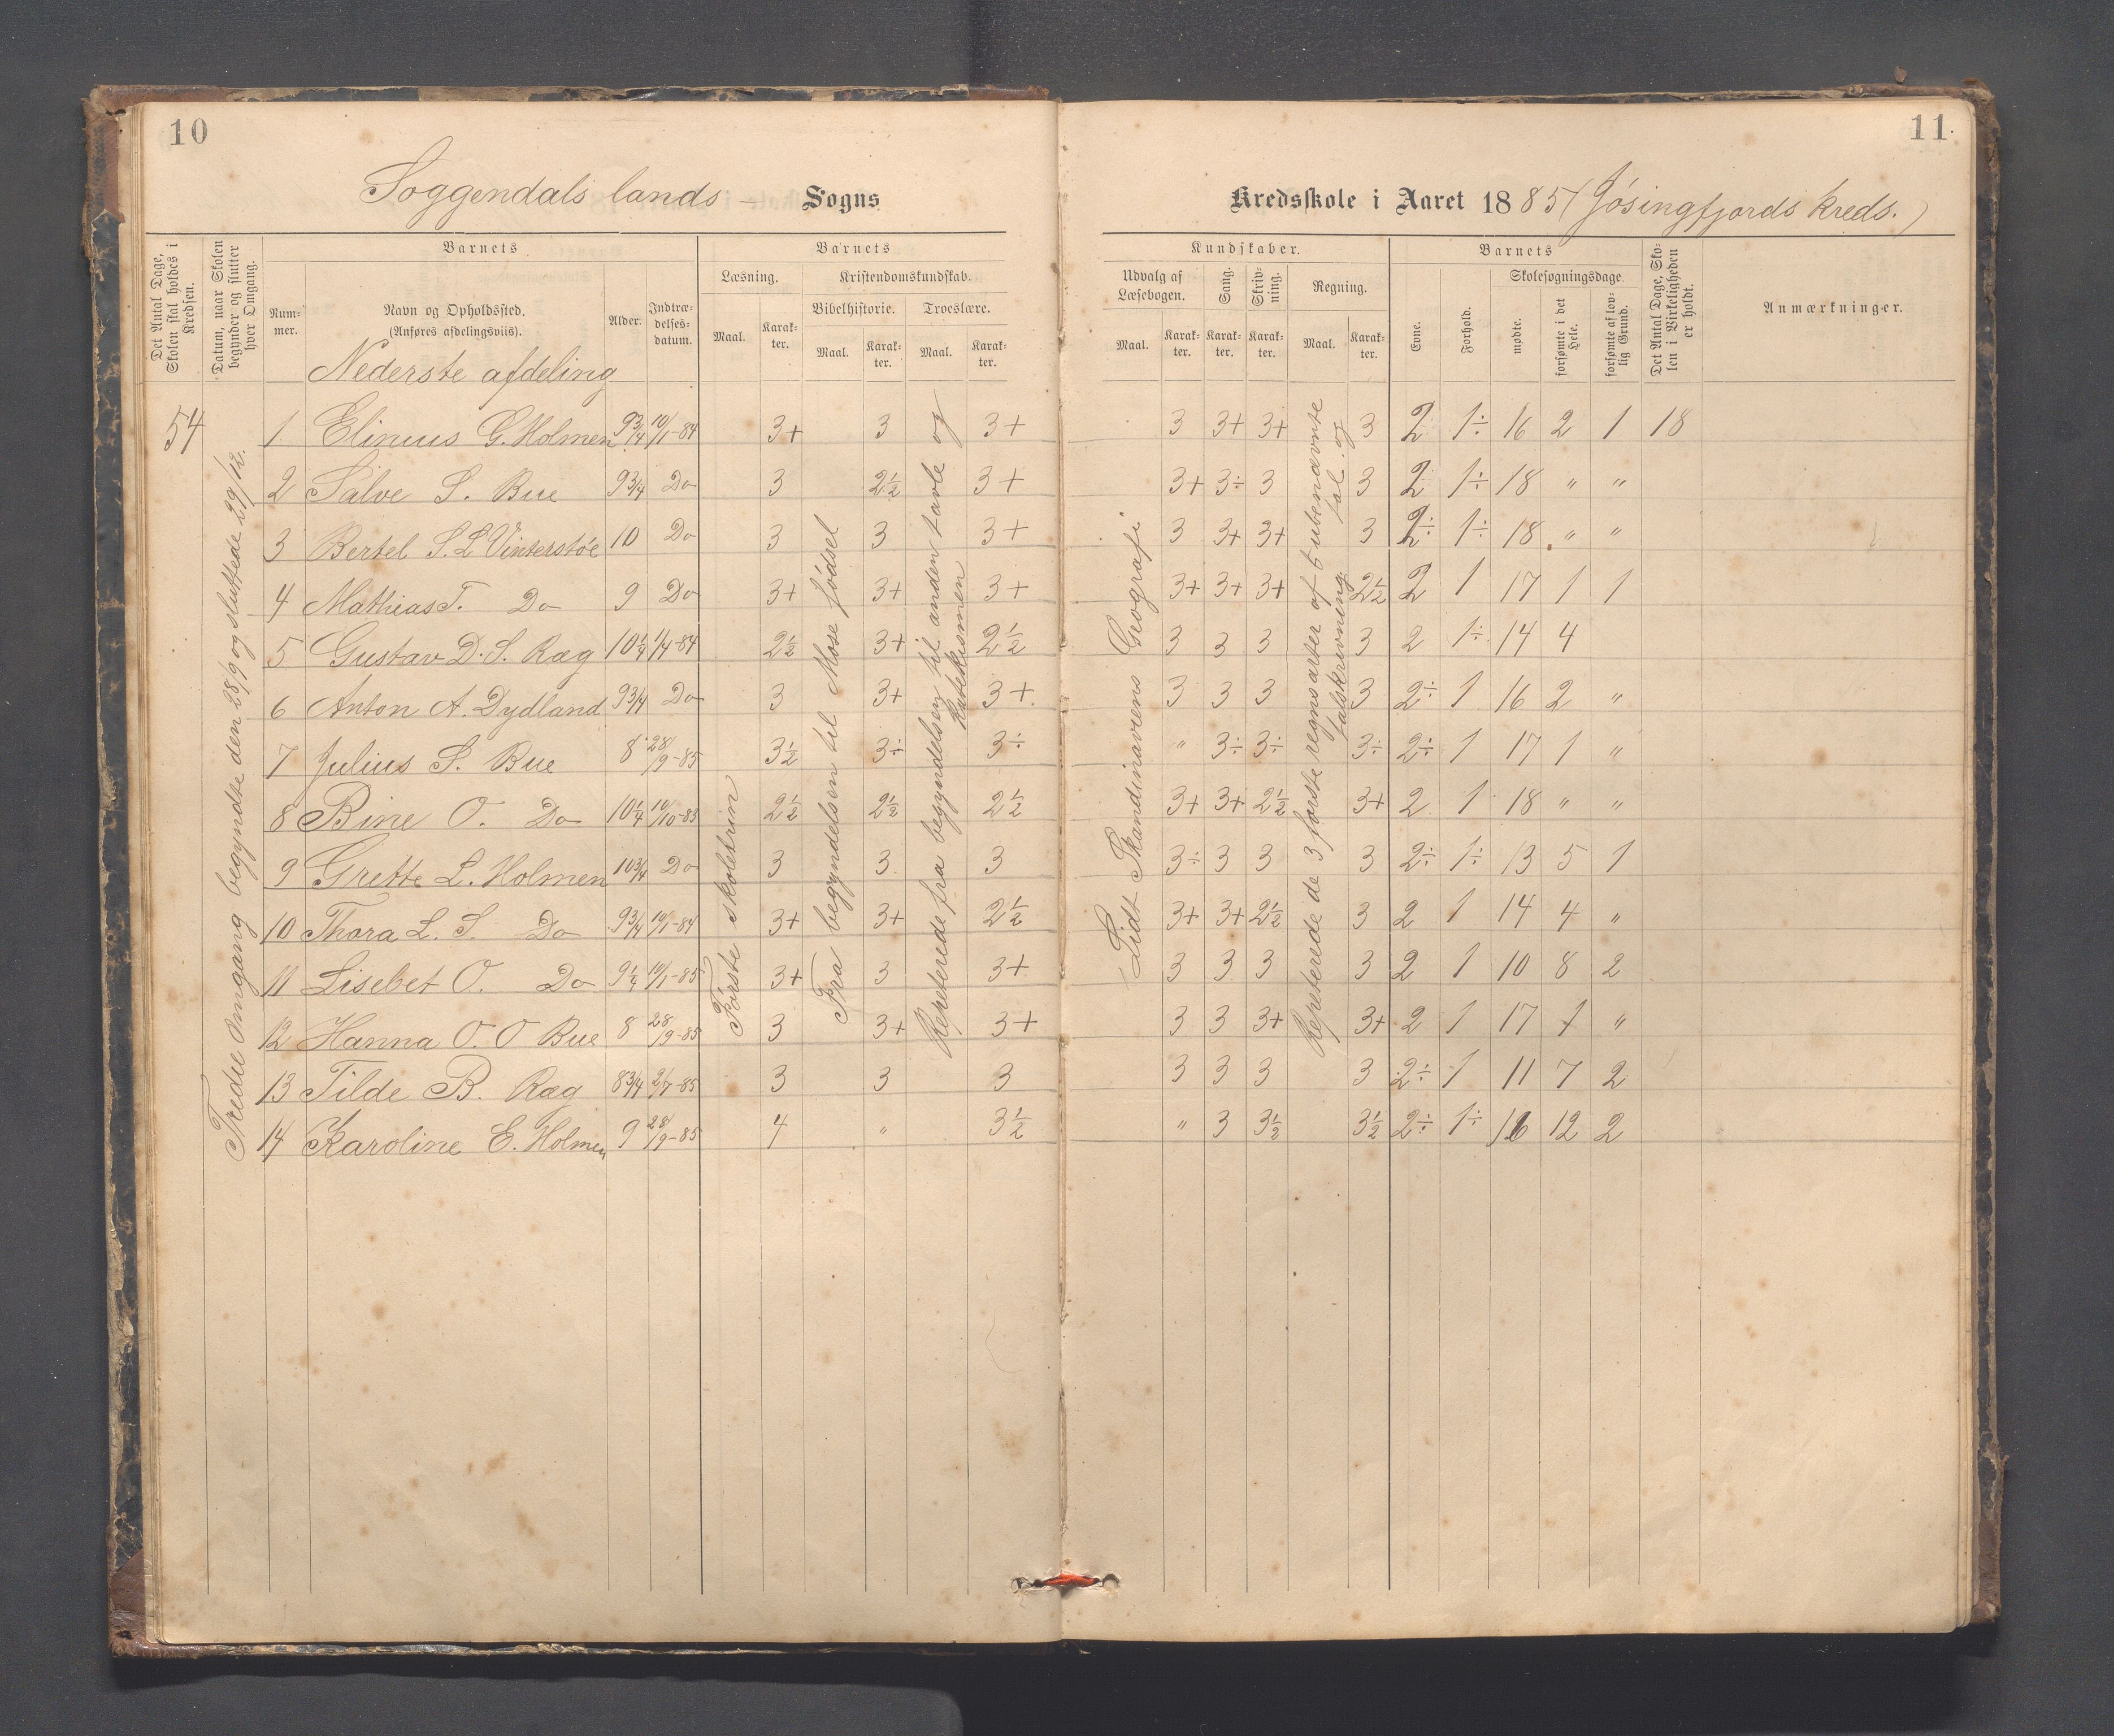 10
Soggendals lands – Sogns
Det Antal Dage, Skolen skal holdes i Kredsen.
Datum, naar Skolen begynder og slutter hver Omgang.
Barnets
Barnets
Nummer.
Navn og Opholdssted.
(Anføres afdelingsviis).
Alder.
Indtrædelsesdatum.
Læsning.
Kristendomskundskab.
Bibelhistorie.
Troeslære.
Maal. Karakter. Maal. Karakter. Maal. Karakter.
Nederste afdeling
54
Tredie Omgang begyndte den 28/9 og sluttede 29/12.
1 Elinius G. Holmen 9 3/4 10/1-84 3+ 3 3+
2 Salve S. Bue 9 3/4 Do 3 2½ 3+
3 Bertel S. L. Vinterstøe 10 Do 3 3 3+
4 Mathias T. Do 9 Do 3+ 3+ 3+
5 Gustav D. S. Ræg 10¼ 1/4-84 2½ 3+ 2½
6 Anton A. Dydland 9 3/4 Do 3 3+ 3+
7 Julius S. Bue 8 28/9-85 3½ 3÷ 3÷
8 Bine O. Do 10¼ 10/10-83 2½ 2½ 2½
9 Grette L. Holmen 10 3/4 Do 3 3 3
10 Thora L. S. Do 9 3/4 10/1-84 3+ 3+ 2½
11 Lisebet O. Do 9¼ 10/1-85 3+ 3 3+
12 Hanna O. O Bue 8 28/9-85 3 3+ 3+
13 Tilde B. Ræg 8 3/4 2/7-85 3 3 3
14 Karoline E. Holmen 9 28/9-85 4 " 3½
Første skoletrin
Fra begyndelsen til Mose fødsel
Repeterede fra begyndelsen til anden tavle og
katekismen
11.
Kredsskole i Aaret 1885 (Jøsingfjords kreds.)
Kundskaber.
Barnets
Udvalg af Læsebogen.
Sang.
Skrivning.
Regning.
Evne.
Forhold.
Skolesøgningsdage
mødte.
forsømte i det Hele.
forsømte af lovlig Grund.
Det Antal Dage, Skolen i Virkeligheden er holdt.
Anmærkninger.
Maal. Karakter. Karakter. Karakter. Maal. Karakter.
3 3+ 3+ 3 2 1÷ 16 2 1 18
3+ 3÷ 3 3 2 1÷ 18 " "
3 3+ 3+ 3 2÷ 1÷ 18 " "
3+ 3+ 3+ 2½ 2 1 17 1 1
3 3 3 3 2 1÷ 14 4
3 3 3 3 2÷ 1 16 2 "
" 3÷ 3÷ 3÷ 2÷ 1 17 1 "
3+ 3+ 2½ 3+ 2 1 18 " "
3÷ 3 3 3 2÷ 1÷ 13 5 1
3+ 3+ 2½ 3 2 1 14 4 "
3 3 3 3 2 1 10 8 2
3 3 3+ 3+ 2 1 17 1 "
3 3 3 3 2÷ 1 11 7 2
" 3 3½ 3½ 2÷ 1÷ 12 2
Lidt Skandinaviens Geografi
Repeterede de 3 første regnsarter af 5 ubenævnte
tal og
talskrivning.